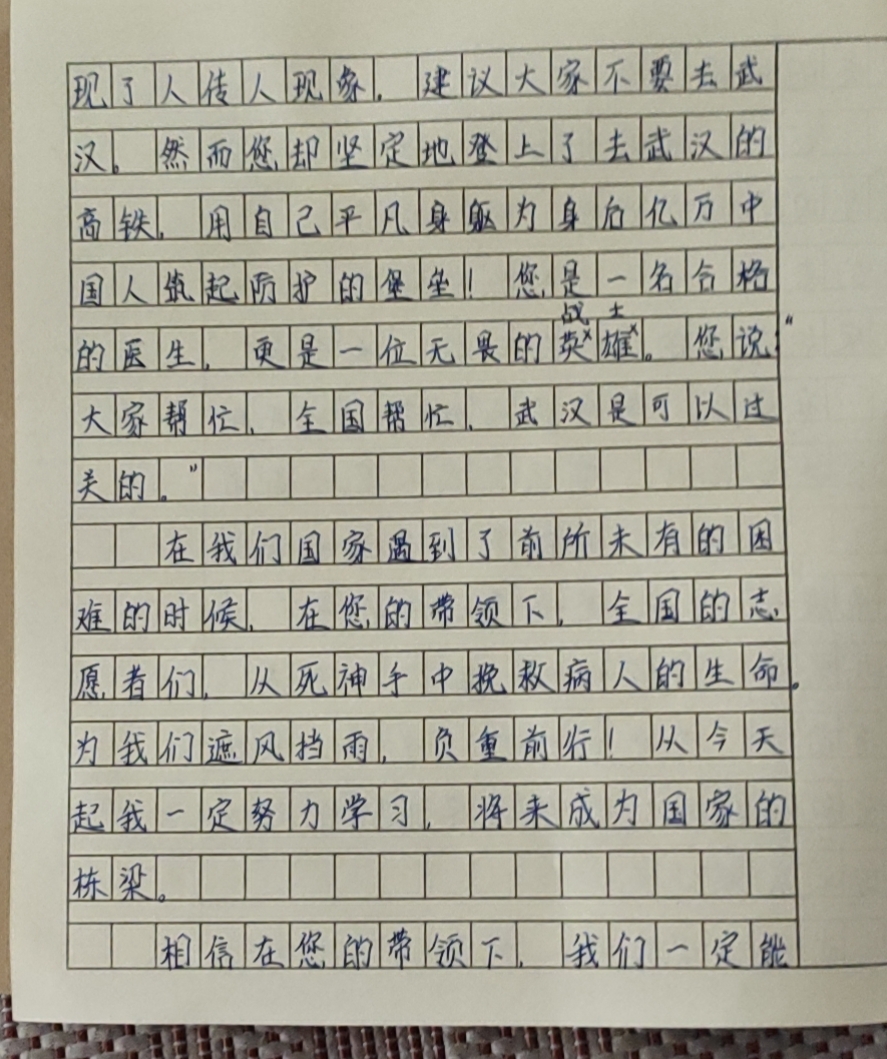 现了人传人现象，建议大家不要去武
汉。然而您却坚定地登上了去武汉的
高铁，用自己平凡身躯为身后亿万中
国人筑起防护的堡垒！您是一名合格
战士
的医生，更是一位无畏的英雄。您说：“
大家帮忙，全国帮忙，武汉是可以过
关的。”
在我们国家遇到了前所未有的困
难的时候，在您的带领下，全国的志
愿者们，从死神手中挽救病人的生命，
为我们遮风挡雨，负重前行！从今天
起我一定努力学习，将来成为国家的
栋梁。
相信在您的带领下，我们一定能